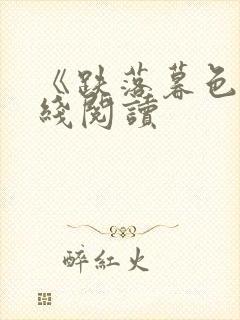 《跌落暮色
綫閱讀
醉紅火